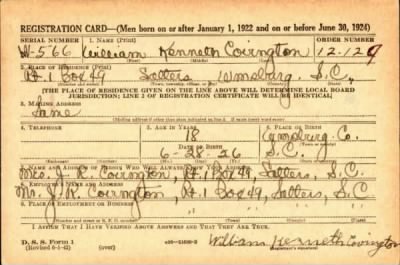 REGISTRATION CARD—(Men born on or after January 1, 1922 and on or before June 30, 1924)
SERIAL NUMBER 1. NAME (Print) ORDER NUMBER
N-566 William Kenneth Covington 12,129
(First) (Middle) (Last)
2. PLACE OF RESIDENCE (Print)
Rt. 1 Box 49 Salters Wmsburg S.C.
[THE PLACE OF RESIDENCE GIVEN ON THE LINE ABOVE WILL DETERMINE LOCAL BOARD
JURISDICTION; LINE 2 OF REGISTRATION CERTIFICATE WILL BE IDENTICAL]
3. MAILING ADDRESS
Same
4. TELEPHONE 5. AGE IN YEARS 6. PLACE OF BIRTH
18 Wmsburg Co.
DATE OF BIRTH
6-28-26 S.C.
7. NAME AND ADDRESS OF PERSON WHO WILL ALWAYS KNOW YOUR ADDRESS
Mrs. J. R. Covington, Rt. 1 Box 49, Salters, S.C.
8. EMPLOYER'S NAME AND ADDRESS
Mr. J. R. Covington, Rt. 1 Box 49, Salters, S.C
9. PLACE OF EMPLOYMENT OR BUSINESS
I AFFIRM THAT I HAVE VERIFIED ABOVE ANSWERS AND THAT THEY ARE TRUE.
D. S. S. Form 1
(Revised 6-9-42) (over)
William Kenneth Covington
(Registrant's signature)